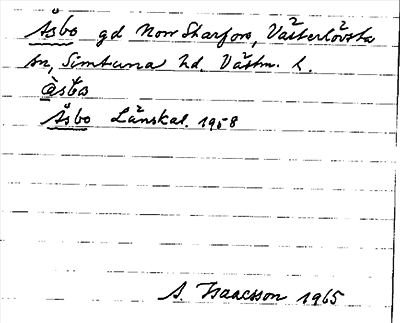 Åsbo gd Norr Sharfors, Västerlövsta
sn, Simtuna hd. Västm. l.
åsbo
Åsbo Länskal. 1958
S. Isaacsson 1965